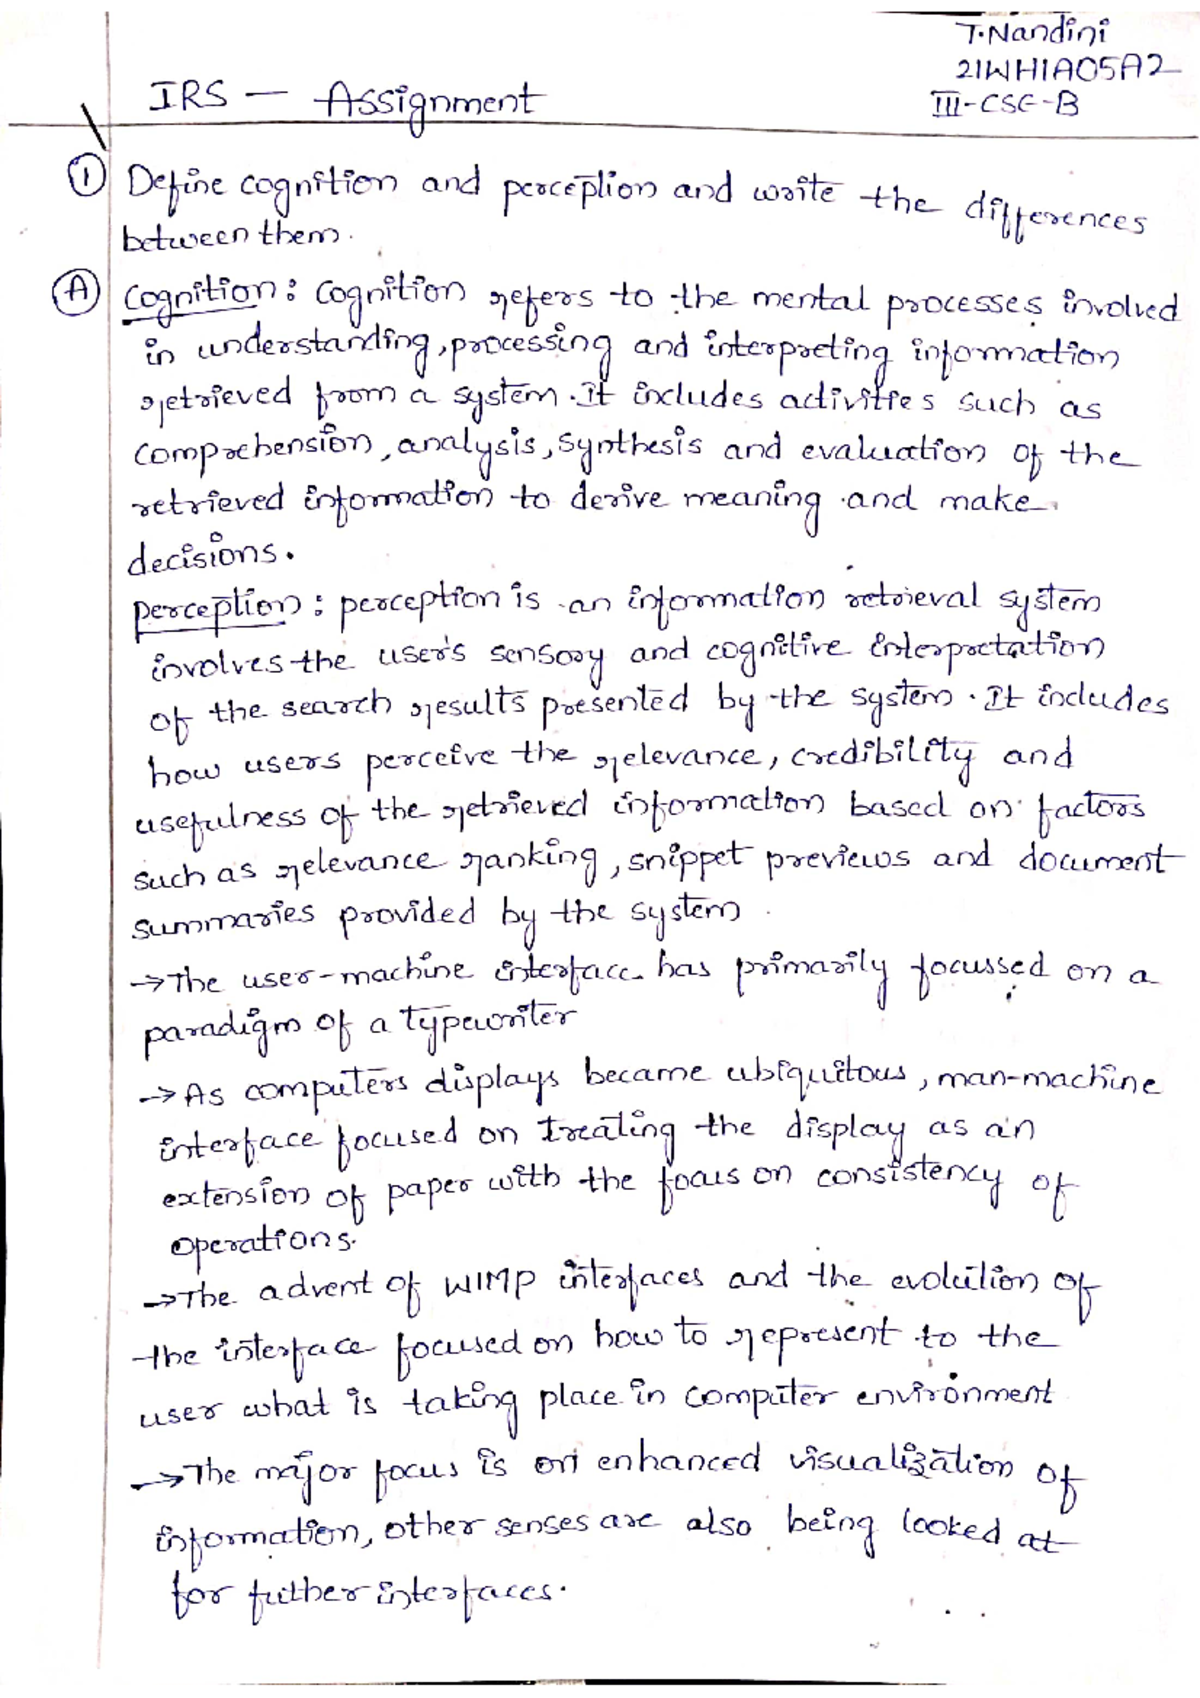 T.Nandini
21WH1A05A2
III-CSE-B
IRS - Assignment
① Define cognition and perception and write the differences
between them.
Ⓐ Cognition: Cognition refers to the mental processes involved
in understanding, processing and interpreting information
retrieved from a system. It includes activities such as
comprehension, analysis, synthesis and evaluation of the
retrieved information to derive meaning and make
decisions.
Perception: perception is an information retrieval system
involves the user's sensory and cognitive interpretation
of the search results presented by the system. It includes
how users perceive the relevance, credibility and
usefulness of the retrieved information based on factors
such as relevance ranking, snippet previews and document
summaries provided by the system.
→The user-machine interface has primarily focussed on a
paradigm of a typewriter
→As computers displays became ubiquitous, man-machine
interface focused on treating the display as an
extension of paper with the focus on consistency of
operations.
→The advent of WIMP interfaces and the evolution of
the interface focused on how to represent to the
user what is taking place in computer environment
→The major focus is on enhanced visualization of
information, other senses are also being looked at
for futher interfaces.